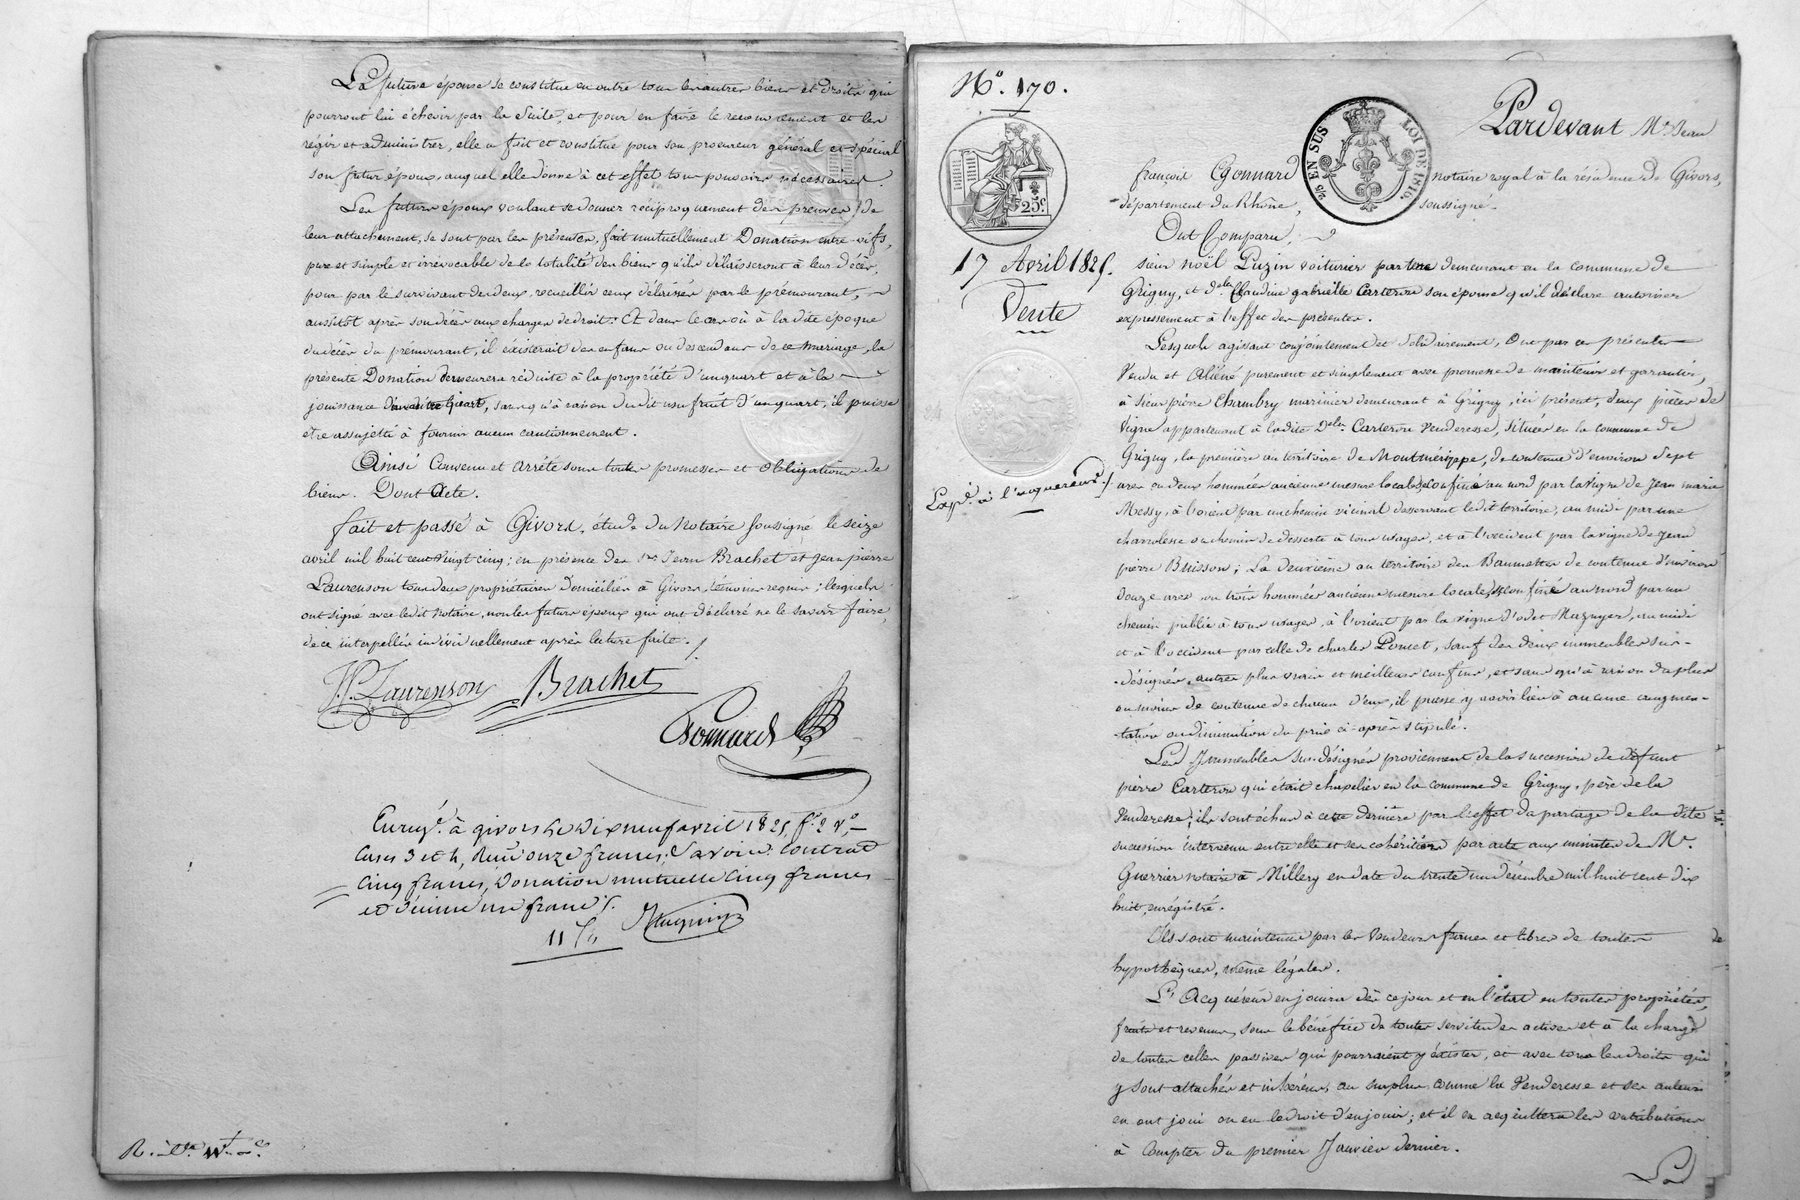 La future épouse se constitue en outre tous les autres biens et droits qui
pourront lui échoir par la suite, et pour en faire le recouvrement et les
régir et administrer, elle a fait et constitué pour son procureur général et spécial
son futur époux, auquel elle donne à cet effet tous pouvoirs nécessaires.
Les futurs époux voulant se donner réciproquement des preuves de
leur attachement, se sont par les présentes, fait mutuellement Donation entre-vifs,
pure et simple et irrévocable de la totalité des biens qu'ils délaisseront à leur décès,
pour par le survivant des deux, recueillir ceux délaissés par le prémourant,
aussitôt après son décès aux charges de droit. Et dans le cas où à la dite époque
du décès du prémourant, il existerait des enfans ou descendans de ce mariage, la
présente Donation demeurera réduite à la propriété d'un quart et à la
jouissance d'un autre quart, sans qu'à raison du dit usufruit d'un quart, il puisse
être assujetti à fournir aucun cautionnement.
Ainsi Convenu et arrêté sous toutes promesses et obligations de
biens. Dont Acte.
fait et passé à Givors, étude du Notaire soussigné le seize
avril mil huit cent vingt cinq; en présence des srs Jean Brachet et Jean pierre
Laurenson tous deux propriétaires domiciliés à Givors, témoins requis; lesquels
ont signé avec le dit Notaire, non les futurs époux qui ont déclaré ne le savoir faire,
de ce interpellés individuellement après lecture faite.
J.P. Laurenson Brachet
Cgonnard
Enregé. à givors le dix neuf avril 1825, f° 2 v°,
Cases 3 et 4, Reçu onze francs; Savoir: contrat
cinq francs, Donation mutuelle cinq francs
et décime un franc
11 f
N°. 170.
25c
17 Avril 1825.
Vente
Expé. à l'acquéreur.
EN SUS
LOI DE 1816.
Pardevant Me Jean
françois Cgonnard notaire royal à la résidence de Givors,
département du Rhône, soussigné.
Ont Comparu,
sieur noël Luzin voiturier par terre demeurant en la commune de
Grigny, et dlle Claudine gabrielle Carteron son épouse qu'il déclare autoriser
expressément à l'effet des présentes.
Lesquels agissant conjointement et solidairement, Ont par ces présentes
Vendu et Aliéné purement et simplement avec promesse de maintenir et garantir,
à sieur pierre Chambry marinier demeurant à Grigny, ici présent, deux pièces de
Vigne appartenant à ladite Delle Carteron Venderesse, situées en la commune de
Grigny, la première au territoire de , de contenue d'environ sept
ares ou deux hommées ancienne mesure locale, se confine au nord par la vigne de Jean marie
Messy, à l'orient par un chemin vicinal desservant le dit territoire, au midi par une
charrolesse ou chemin de desserte à tous usages, et à l'occident par la vigne de Jean
pierre Buisson; La deuxième au territoire des de contenue d'environ
douze ares ou trois hommées ancienne mesure locale, se confine au nord par un
chemin public à tous usages, à l'orient par la vigne d' , au midi
et à l'occident par celle de charles Poncet, sauf des deux immeubles sus-
-désignés, autres plus vrais et meilleurs confins, et sans qu'à raison du plus
ou moins de contenue de chacun d'eux, il puisse y avoir lieu à aucune augmen-
-tation ou diminution du prix ci-après stipulé.
Les Immeubles sus-désignés proviennent de la succession de défunt
pierre Carteron qui était chapelier en la commune de Grigny, père de la
Venderesse; ils sont échus à cette dernière par l'effet du partage de la dite
succession intervenu entre elle et ses cohéritiers par acte aux minutes de Me.
Guerrier notaire à Millery en date du trente un décembre mil huit cent dix
huit, enregistré.
Ils sont maintenus par les Vendeurs francs et libres de toutes
hypothèques, même légales.
L'Acquéreur en jouira dès ce jour et en l'état en toutes propriétés,
fruits et revenus, sous le bénéfice de toutes servitudes actives et à la charge
de toutes celles passives qui pourraient y exister, et avec tous les droits qui
y sont attachés et inhérens, au surplus comme la Venderesse et ses auteurs
en ont joui ou eu le droit d'en jouir; et il en acquittera les contributions
à Compter du premier Janvier dernier.